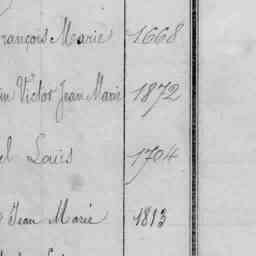 François Marie 1668
Victor Jean Marie 1872
el Louis 1704
Jean Marie 1813